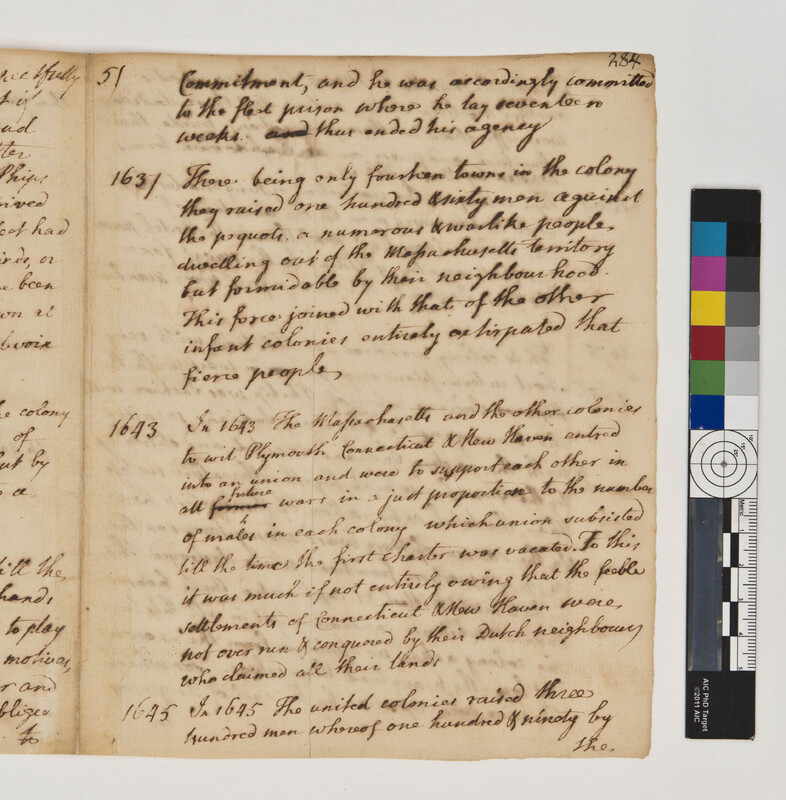 284
51 Commitment, and he was accordingly committed
to the fleet prison where he lay seventeen
weeks. and thus ended his agency
1637 There being only fourteen towns in the colony
they raised one hundred & sixty men against
the pequots. a numerous & warlike people,
dwelling out of the Massachusetts territory
but formidable by their neighbourhood.
This force joined with that of the other
infant colonies entirely extirpated that
fierce people,
1643 In 1643 The Massachusetts and the other colonies
to wit Plymouth Connecticut & New Haven entred
into an union and were to support each other in
all former future wars in a just proportion to the number
of males in each colony which union subsisted
till the time the first charter was vacated. To this
it was much if not entirely owing that the feeble
settlements of Connecticut & New Haven were
not over run & conquered by their Dutch neighbours
who claimed all their lands
1645 In 1645 The united colonies raised three
hundred men whereof one hundred & ninety by
the
ter
Phips
had
or
been
colony
of
but by
to a
till the
hands
to play
motives,
or and
oblige
to
AIC PhD Target
©2011 AIC
Metric
1
2
3
4
5